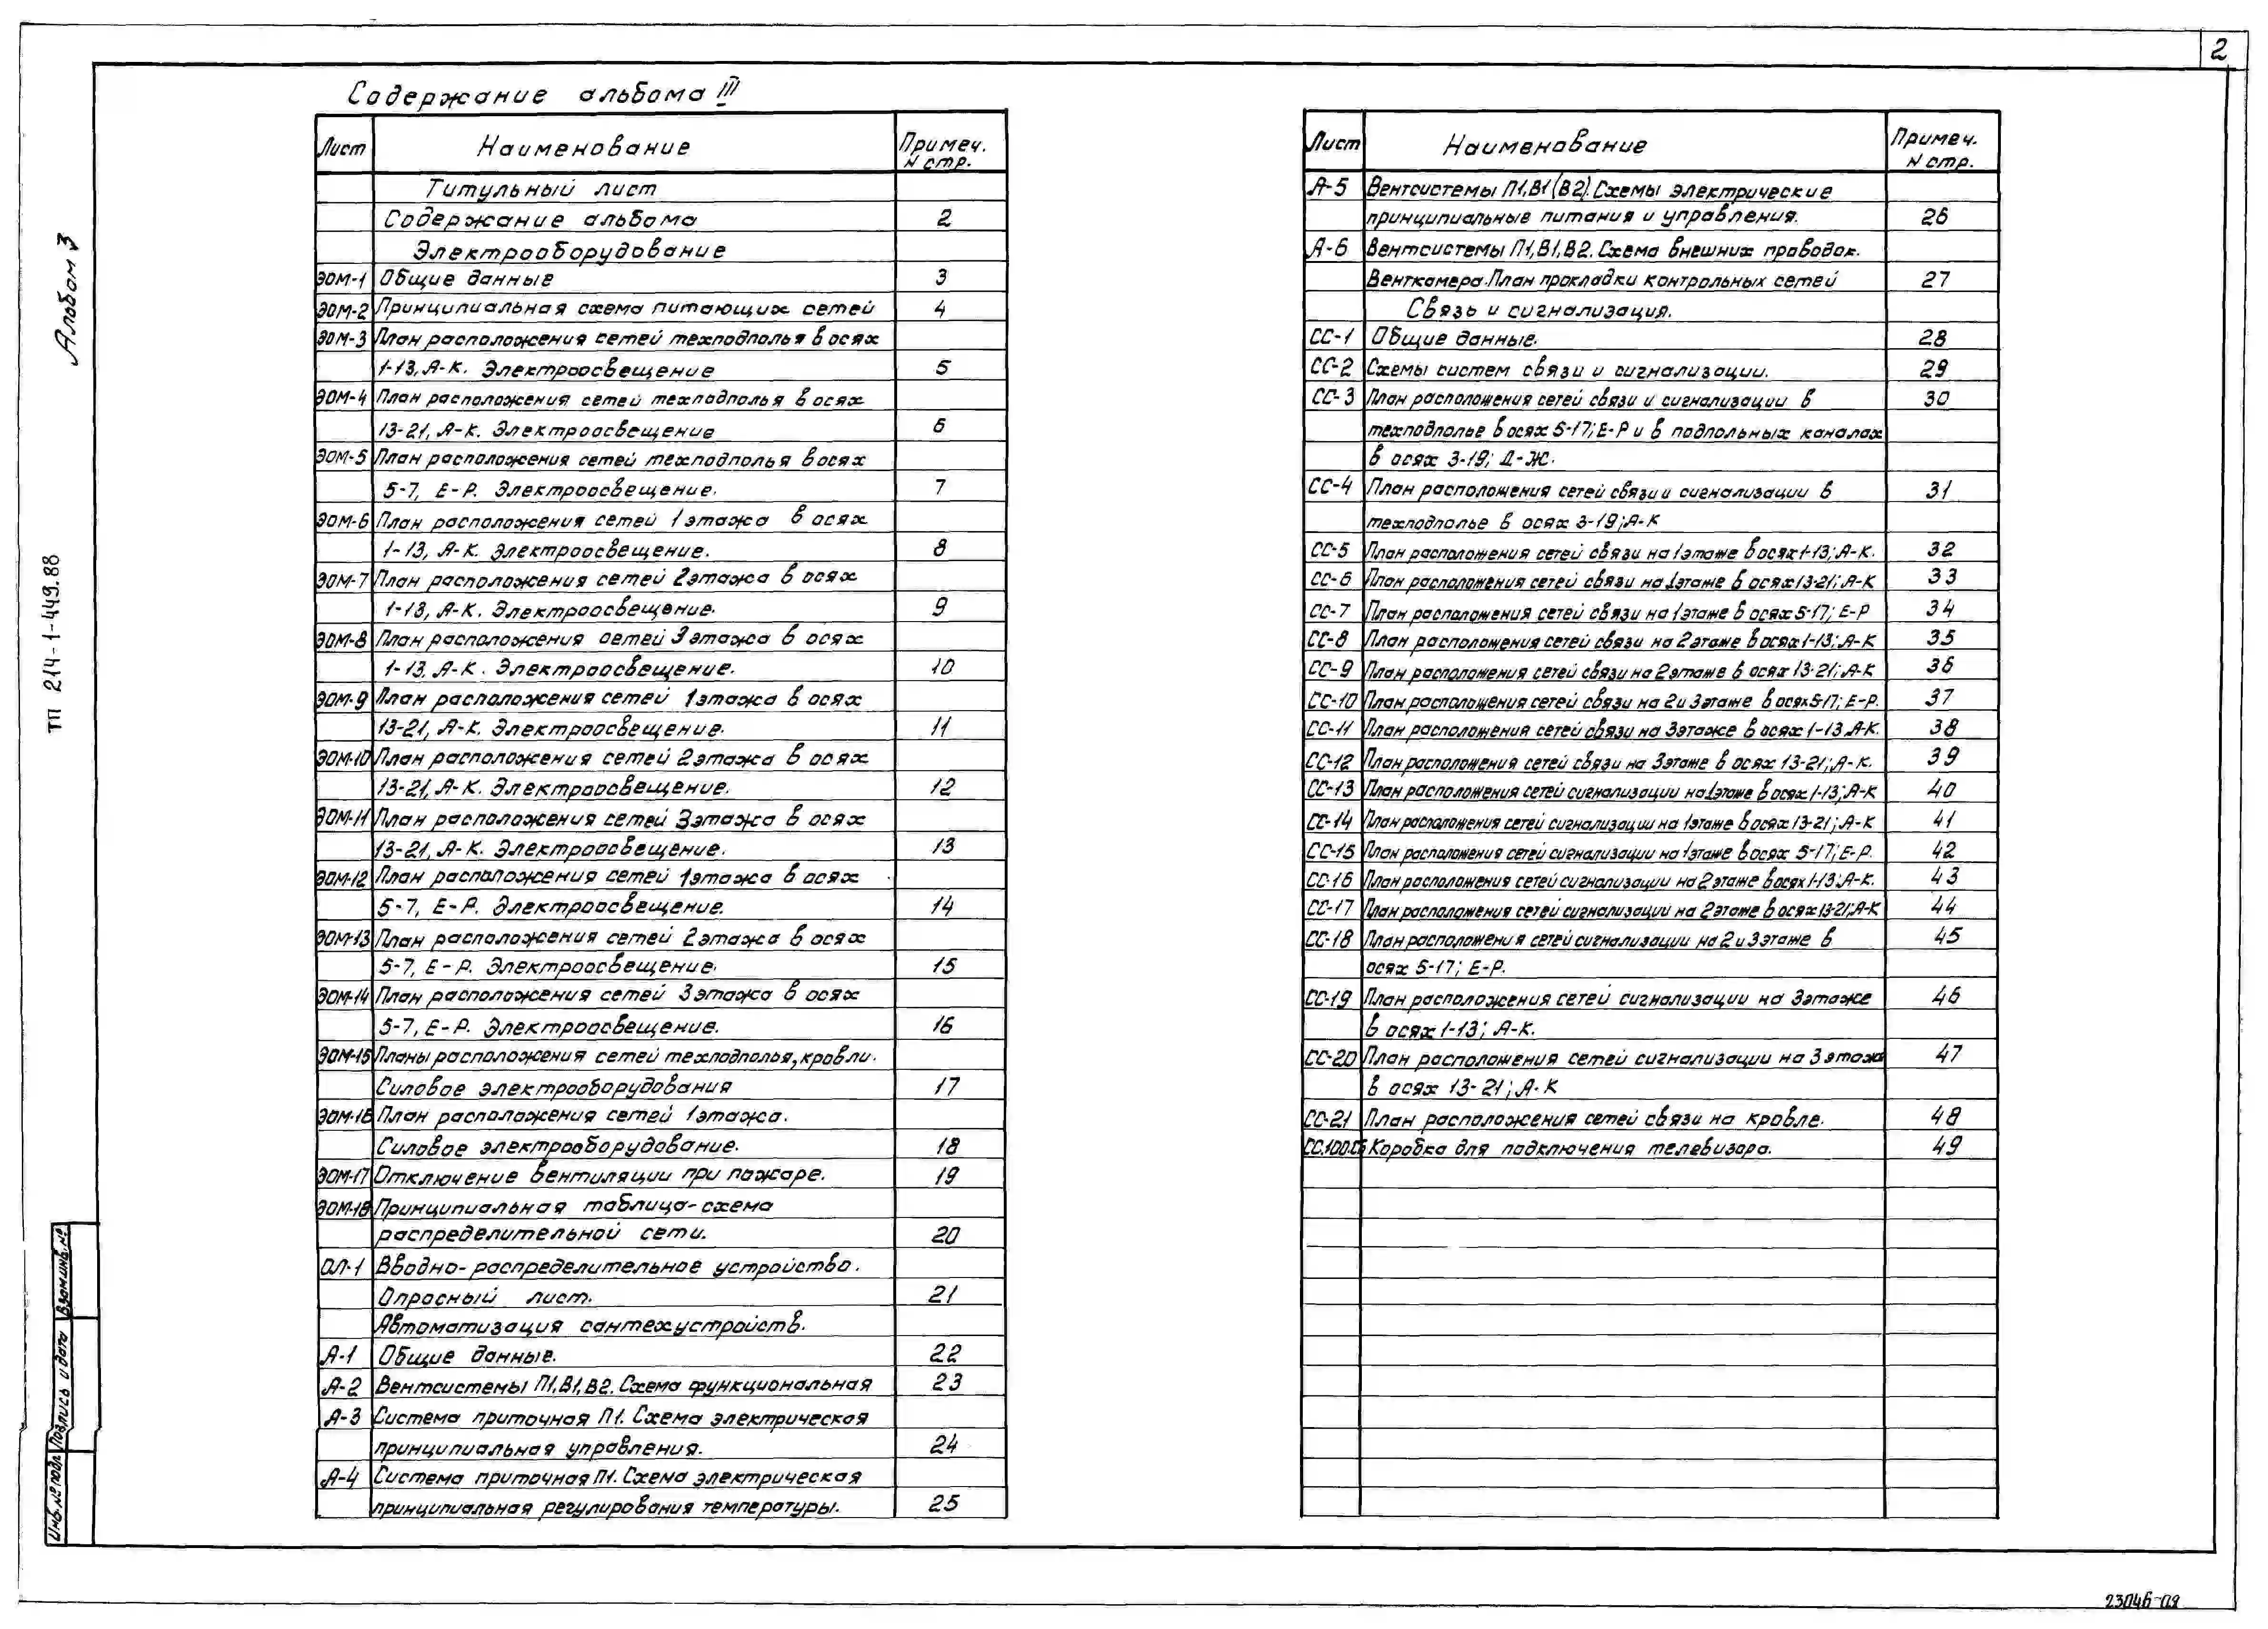 2
Содержание альбома III
Лист Наименование Примеч. N стр.
Титульный лист
Содержание альбома 2
Электрооборудование
ЭОМ-1 Общие данные 3
ЭОМ-2 Принципиальная схема питающих сетей 4
ЭОМ-3 План расположения сетей техподполья в осях
1-13, А-К. Электроосвещение 5
ЭОМ-4 План расположения сетей техподполья в осях
13-21, А-К. Электроосвещение 6
ЭОМ-5 План расположения сетей техподполья в осях
5-7, Е-Р. Электроосвещение. 7
ЭОМ-6 План расположения сетей 1 этажа в осях
1-13, А-К. Электроосвещение. 8
ЭОМ-7 План расположения сетей 2 этажа в осях
1-13, А-К. Электроосвещение. 9
ЭОМ-8 План расположения сетей 3 этажа в осях
1-13, А-К. Электроосвещение. 10
ЭОМ-9 План расположения сетей 1 этажа в осях
13-21, А-К. Электроосвещение. 11
ЭОМ-10 План расположения сетей 2 этажа в осях
13-21, А-К. Электроосвещение. 12
ЭОМ-11 План расположения сетей 3 этажа в осях
13-21, А-К. Электроосвещение. 13
ЭОМ-12 План расположения сетей 1 этажа в осях
5-7, Е-Р. Электроосвещение. 14
ЭОМ-13 План расположения сетей 2 этажа в осях
5-7, Е-Р. Электроосвещение. 15
ЭОМ-14 План расположения сетей 3 этажа в осях
5-7, Е-Р. Электроосвещение. 16
ЭОМ-15 Планы расположения сетей техподполья, кровли.
Силовое электрооборудования 17
ЭОМ-16 План расположения сетей 1 этажа.
Силовое электрооборудование. 18
ЭОМ-17 Отключение вентиляции при пожаре. 19
ЭОМ-18 Принципиальная таблица-схема
распределительной сети. 20
ОЛ-1 Вводно-распределительное устройство.
Опросный лист. 21
Автоматизация сантехустройств.
А-1 Общие данные. 22
А-2 Вентсистемы П1, В1, В2. Схема функциональная 23
А-3 Система приточная П1. Схема электрическая
принципиальная управления. 24
А-4 Система приточная П1. Схема электрическая
принципиальная регулирования температуры. 25
Лист Наименование Примеч. N стр.
А-5 Вентсистемы П1, В1 (В2). Схемы электрические
принципиальные питания и управления. 26
А-6 Вентсистемы П1, В1, В2. Схема внешних проводок.
Венткамера. План прокладки контрольных сетей 27
Связь и сигнализация.
СС-1 Общие данные. 28
СС-2 Схемы систем связи и сигнализации. 29
СС-3 План расположения сетей связи и сигнализации в 30
техподполье в осях 5-17; Е-Р и в подпольных каналах
в осях 3-19; Д-Ж.
СС-4 План расположения сетей связи и сигнализации в 31
техподполье в осях 3-19; А-К
СС-5 План расположения сетей связи на 1 этаже в осях 1-13; А-К. 32
СС-6 План расположения сетей связи на 1 этаже в осях 13-21; А-К 33
СС-7 План расположения сетей связи на 1 этаже в осях 5-17; Е-Р 34
СС-8 План расположения сетей связи на 2 этаже в осях 1-13; А-К 35
СС-9 План расположения сетей связи на 2 этаже в осях 13-21; А-К 36
СС-10 План расположения сетей связи на 2 и 3 этаже в осях 5-17; Е-Р. 37
СС-11 План расположения сетей связи на 3 этаже в осях 1-13 А-К. 38
СС-12 План расположения сетей связи на 3 этаже в осях 13-21; А-К. 39
СС-13 План расположения сетей сигнализации на 1 этаже в осях 1-13; А-К 40
СС-14 План расположения сетей сигнализации на 1 этаже в осях 13-21; А-К 41
СС-15 План расположения сетей сигнализации на 1 этаже в осях 5-17; Е-Р. 42
СС-16 План расположения сетей сигнализации на 2 этаже в осях 1-13; А-К. 43
СС-17 План расположения сетей сигнализации на 2 этаже в осях 13-21; А-К 44
СС-18 План расположения сетей сигнализации на 2 и 3 этаже в 45
осях 5-17; Е-Р.
СС-19 План расположения сетей сигнализации на 3 этаже 46
в осях 1-13; А-К.
СС-20 План расположения сетей сигнализации на 3 этаже 47
в осях 13-21; А-К
СС-21 План расположения сетей связи на кровле. 48
СС.100.СБ Коробка для подключения телевизора. 49
Альбом 3
ТП 214-1-449.88
Взам.инв.№
Подпись и дата
Инв.№ подл.
23046-02